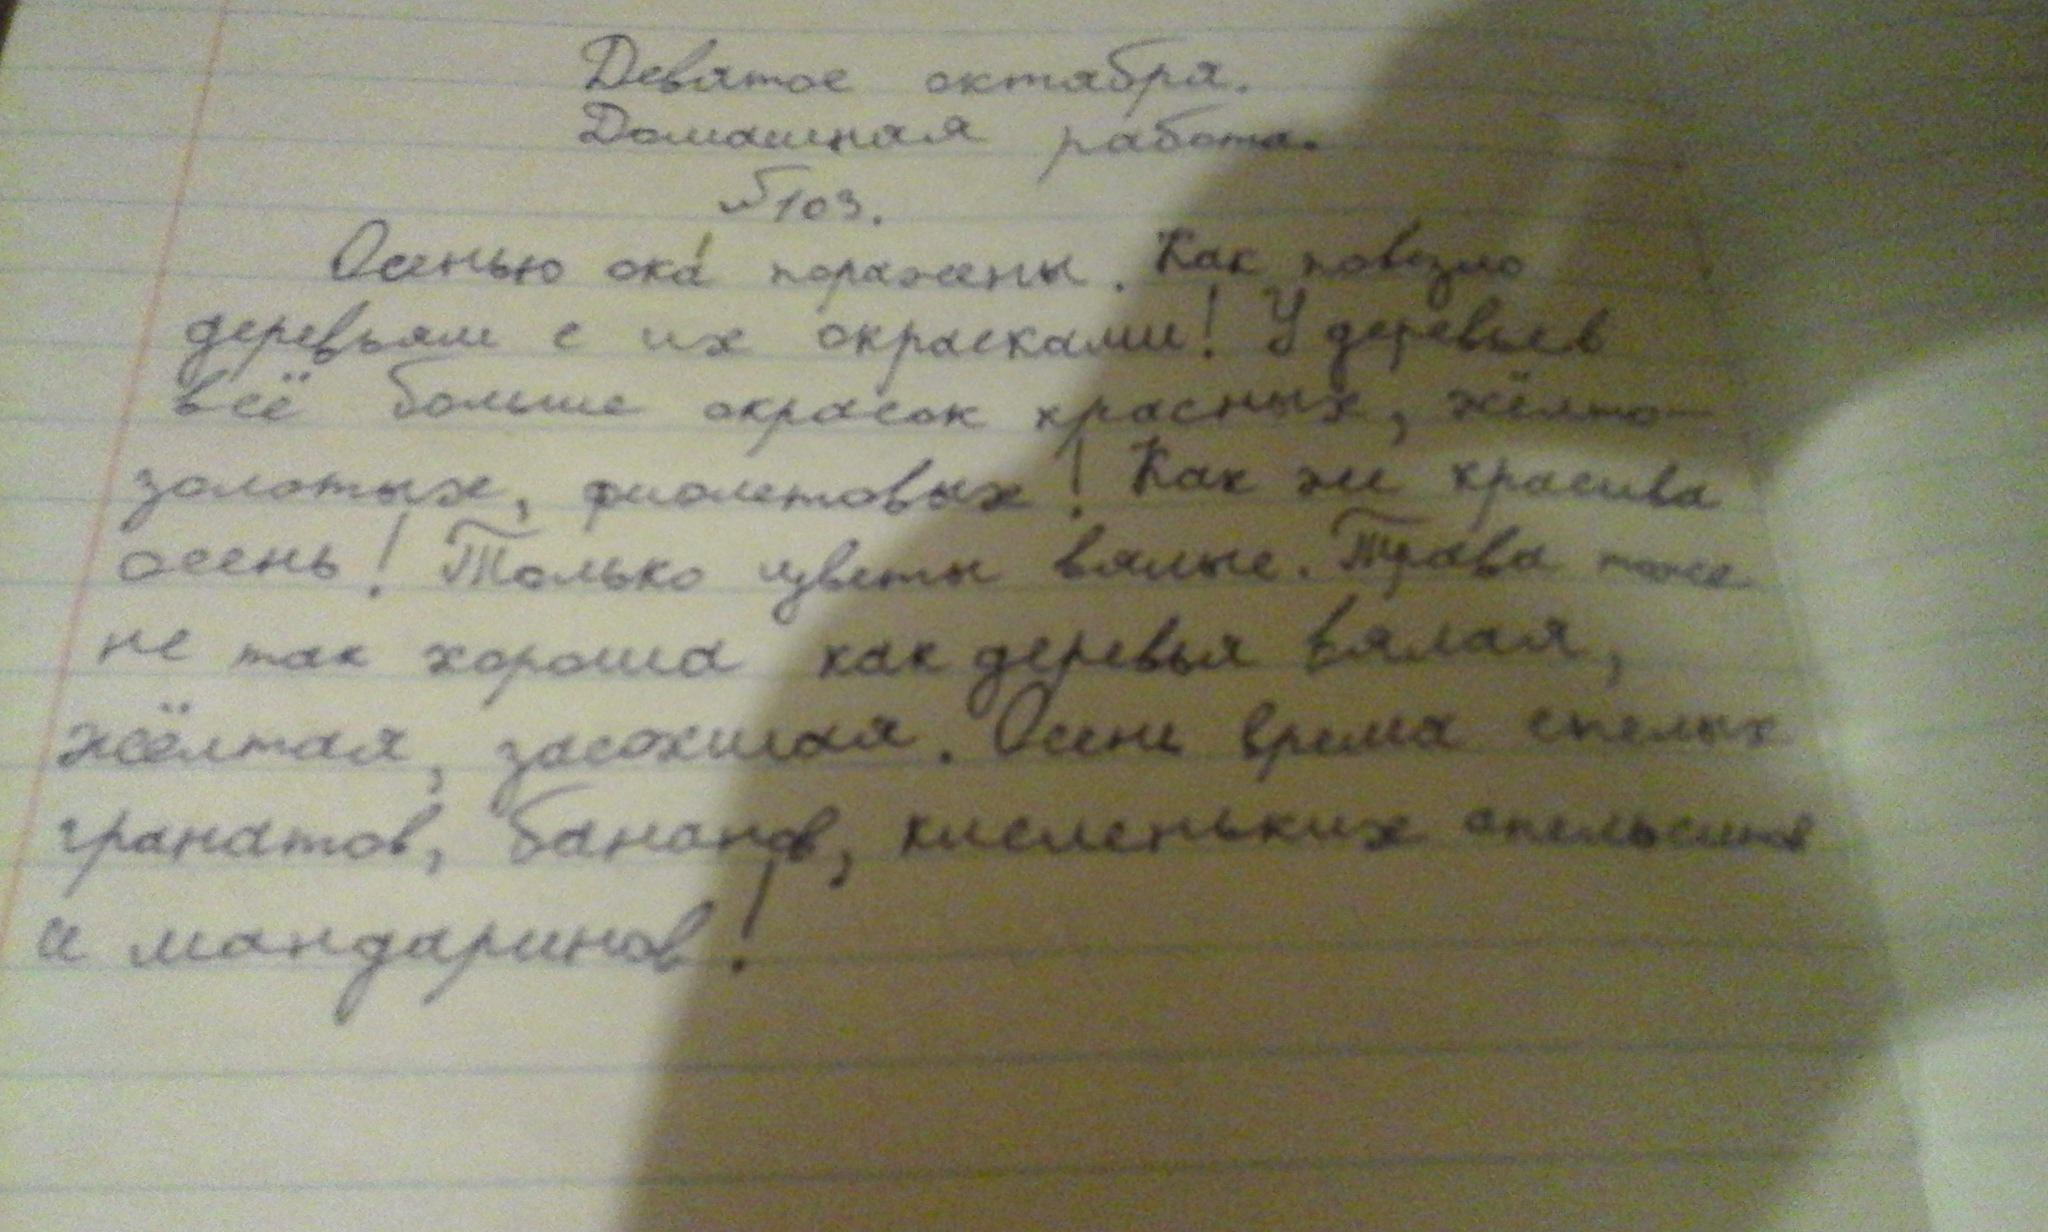 Девятое октября.
Домашная работа.
№103.
Осенью ока́ поражены. Как повезло
деревьям с их окрасками! У деревьев
всё больше окрасок красных, жёлто-
золотых, фиолетовых! Как же красива
осень! Только цветы вялые. Трава тоже
не так хороша как деревья вялая,
жёлтая, засохшая. Осень время спелых
гранатов, бананов, кисленьких апельсинов
и мандаринов!